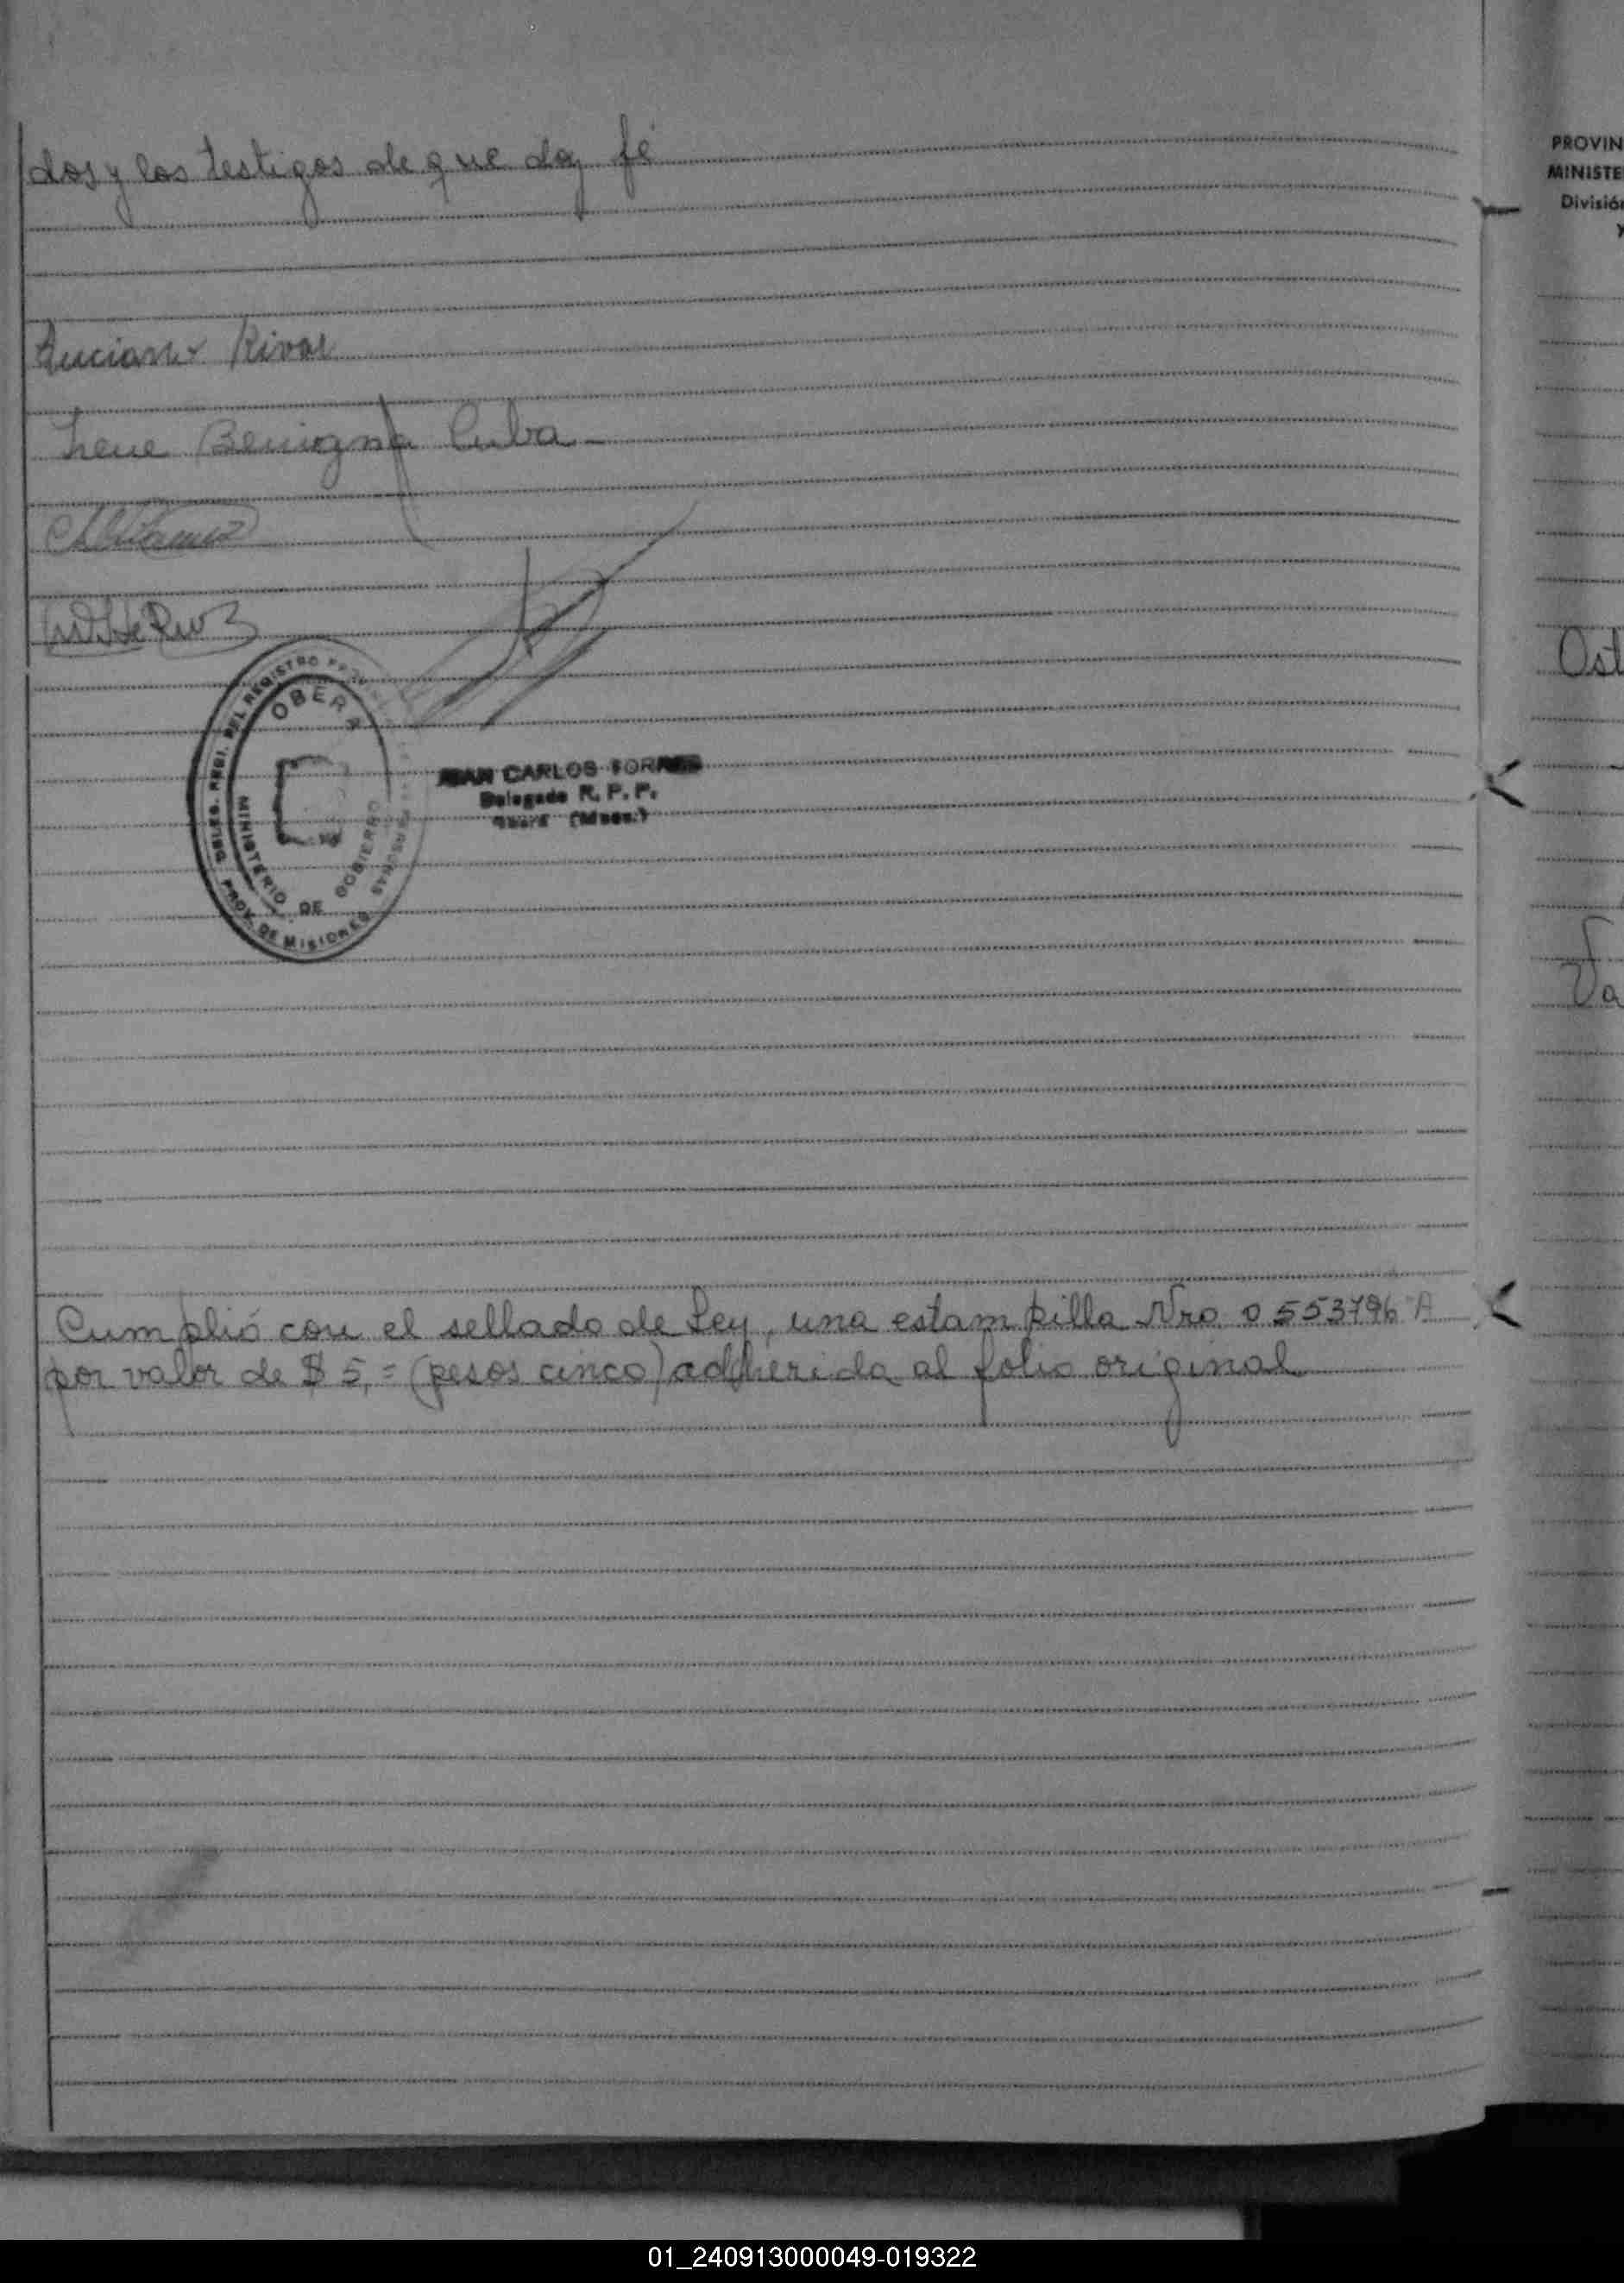 dos y los testigos de que doy fé
Luciano Rivas
Irene Benigna Cuba
OBERA
MINISTERIO DE GOBIERNO
DEL REGISTRO PROV. DE MISIONES
JUAN CARLOS TORRES
Delegado R. P. P.
Oberá (Mnes.)
Cumplió con el sellado de Ley, una estampilla Nro 0553796 A
por valor de $ 5,= (pesos cinco) adherida al folio original
PROVIN
MINISTE
División
y
Ost
Va
01_240913000049-019322